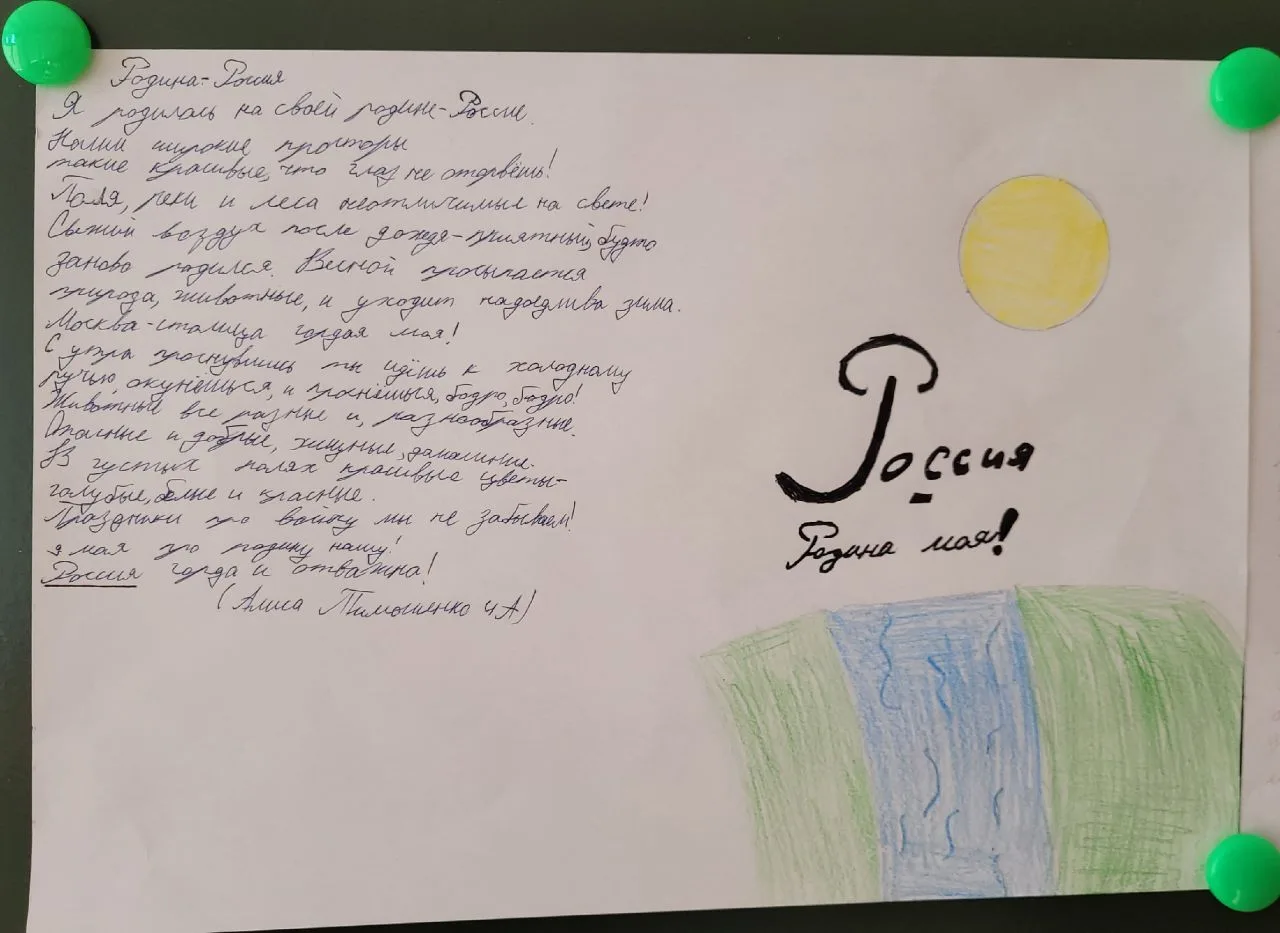 Родина-Россия
Я родилась на своей родине-России.
Наши широкие просторы
такие красивые, что глаз не оторвёшь!
Поля, реки и леса неотличимые на свете!
Свежий воздух после дождя-приятный, будто
заново родился. Весной просыпается
природа, животные, и уходит надоедлива зима.
Москва-столица гордая моя!
С утра проснувшись ты идёшь к холодному
ручью, окунёшься, и проснёшься, бодро, бодро!
Животные все разные и, разнообразные.
Опасные и добрые, хищные, домашние.
В густых полях красивые цветы-
голубые, белые и красные.
Праздники про войну мы не забываем!
я моя про родину нашу!
Россия горда и отважна!
(Алиса Тимошенко 4А)
Россия
Родина моя!